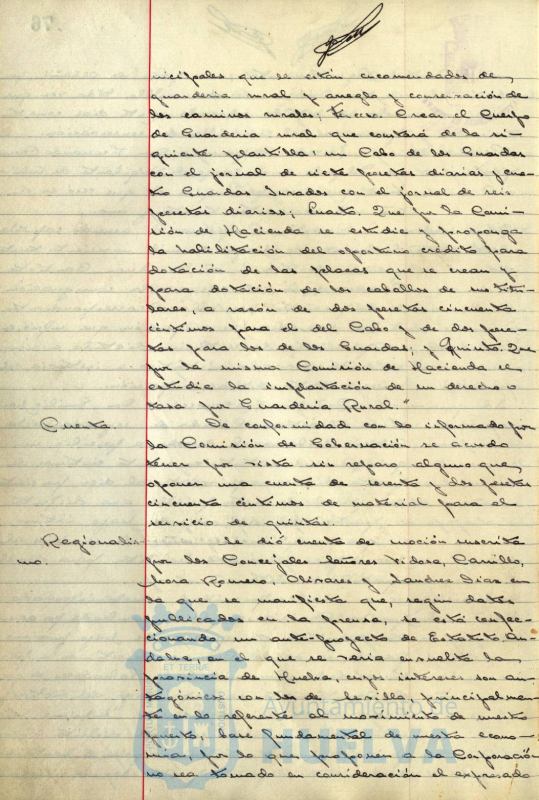 nicipales que le están encomendados de
guarderia rural y arreglo y conservación de
los caminos rurales; Tercero. Crear el Cuerpo
de Guarderia rural que constará de la si-
guiente plantilla: un Cabo de los Guardas
con el jornal de siete pesetas diarias y cua-
tro Guardas Jurados con el jornal de seis
pesetas diarias; Cuarto. Que por la Comi-
sión de Hacienda se estudie y proponga
la habilitación del oportuno crédito para
dotación de las plazas que se crean y
para dotación de los caballos de sus titu-
lares, a razón de dos pesetas cincuenta
céntimos para el del Cabo y de dos pese-
tas para los de los Guardas; y Quinto. Que
por la misma Comisión de Hacienda se
estudie la implantación de un derecho o
tasa por Guarderia Rural."
Cuenta. De conformidad con lo informado por
la Comisión de Gobernación se acordó
tener por vista sin reparo alguno que
oponer una cuenta de sesenta y dos pesetas
cincuenta céntimos de material para el
servicio de quintas.
Regionalis- Se dió cuenta de moción suscrita
mo. por los Concejales señores Vidosa, Carrillo,
Mora Romero, Olivares y Sanchez Diaz en
la que se manifiesta que, según datos
publicados en la prensa, se está confec-
cionando un ante-proyecto de Estatuto An-
daluz, en el que se veria envuelta la
provincia de Huelva, cuyos intereses son an-
tagónicos con los de Sevilla, principalmen-
te en lo referente al movimiento de nuestro
puerto, base fundamental de nuestra econo-
mia, por lo que proponen a la Corporación
no sea tomado en consideración el expresado
ET TERRE
Ayuntamiento de
HUELVA